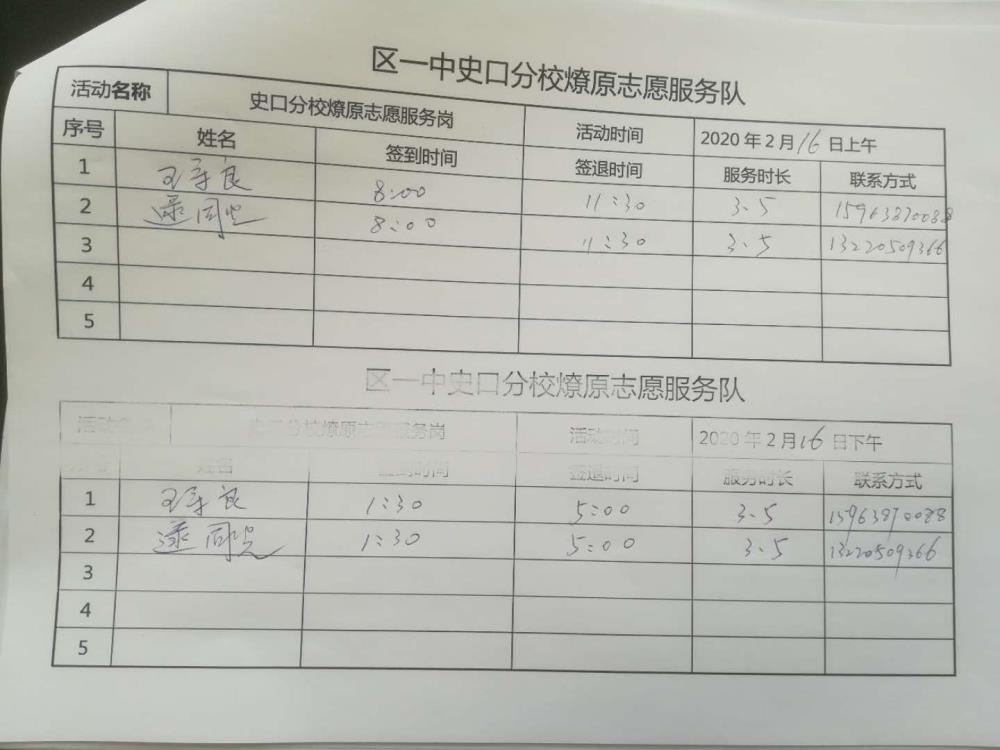 区一中史口分校燎原志愿服务队
活动名称 史口分校燎原志愿服务岗 活动时间 2020年2月16日上午
序号 姓名 签到时间 签退时间 服务时长 联系方式
1 王孝良 8:00 11:30 3.5 15963870088
2 逯同光 8:00 11:30 3.5 13220509366
3
4
5
区一中史口分校燎原志愿服务队
活动名称 史口分校燎原志愿服务岗 活动时间 2020年2月16日下午
序号 姓名 签到时间 签退时间 服务时长 联系方式
1 王孝良 1:30 5:00 3.5 15963870088
2 逯同光 1:30 5:00 3.5 13220509366
3
4
5